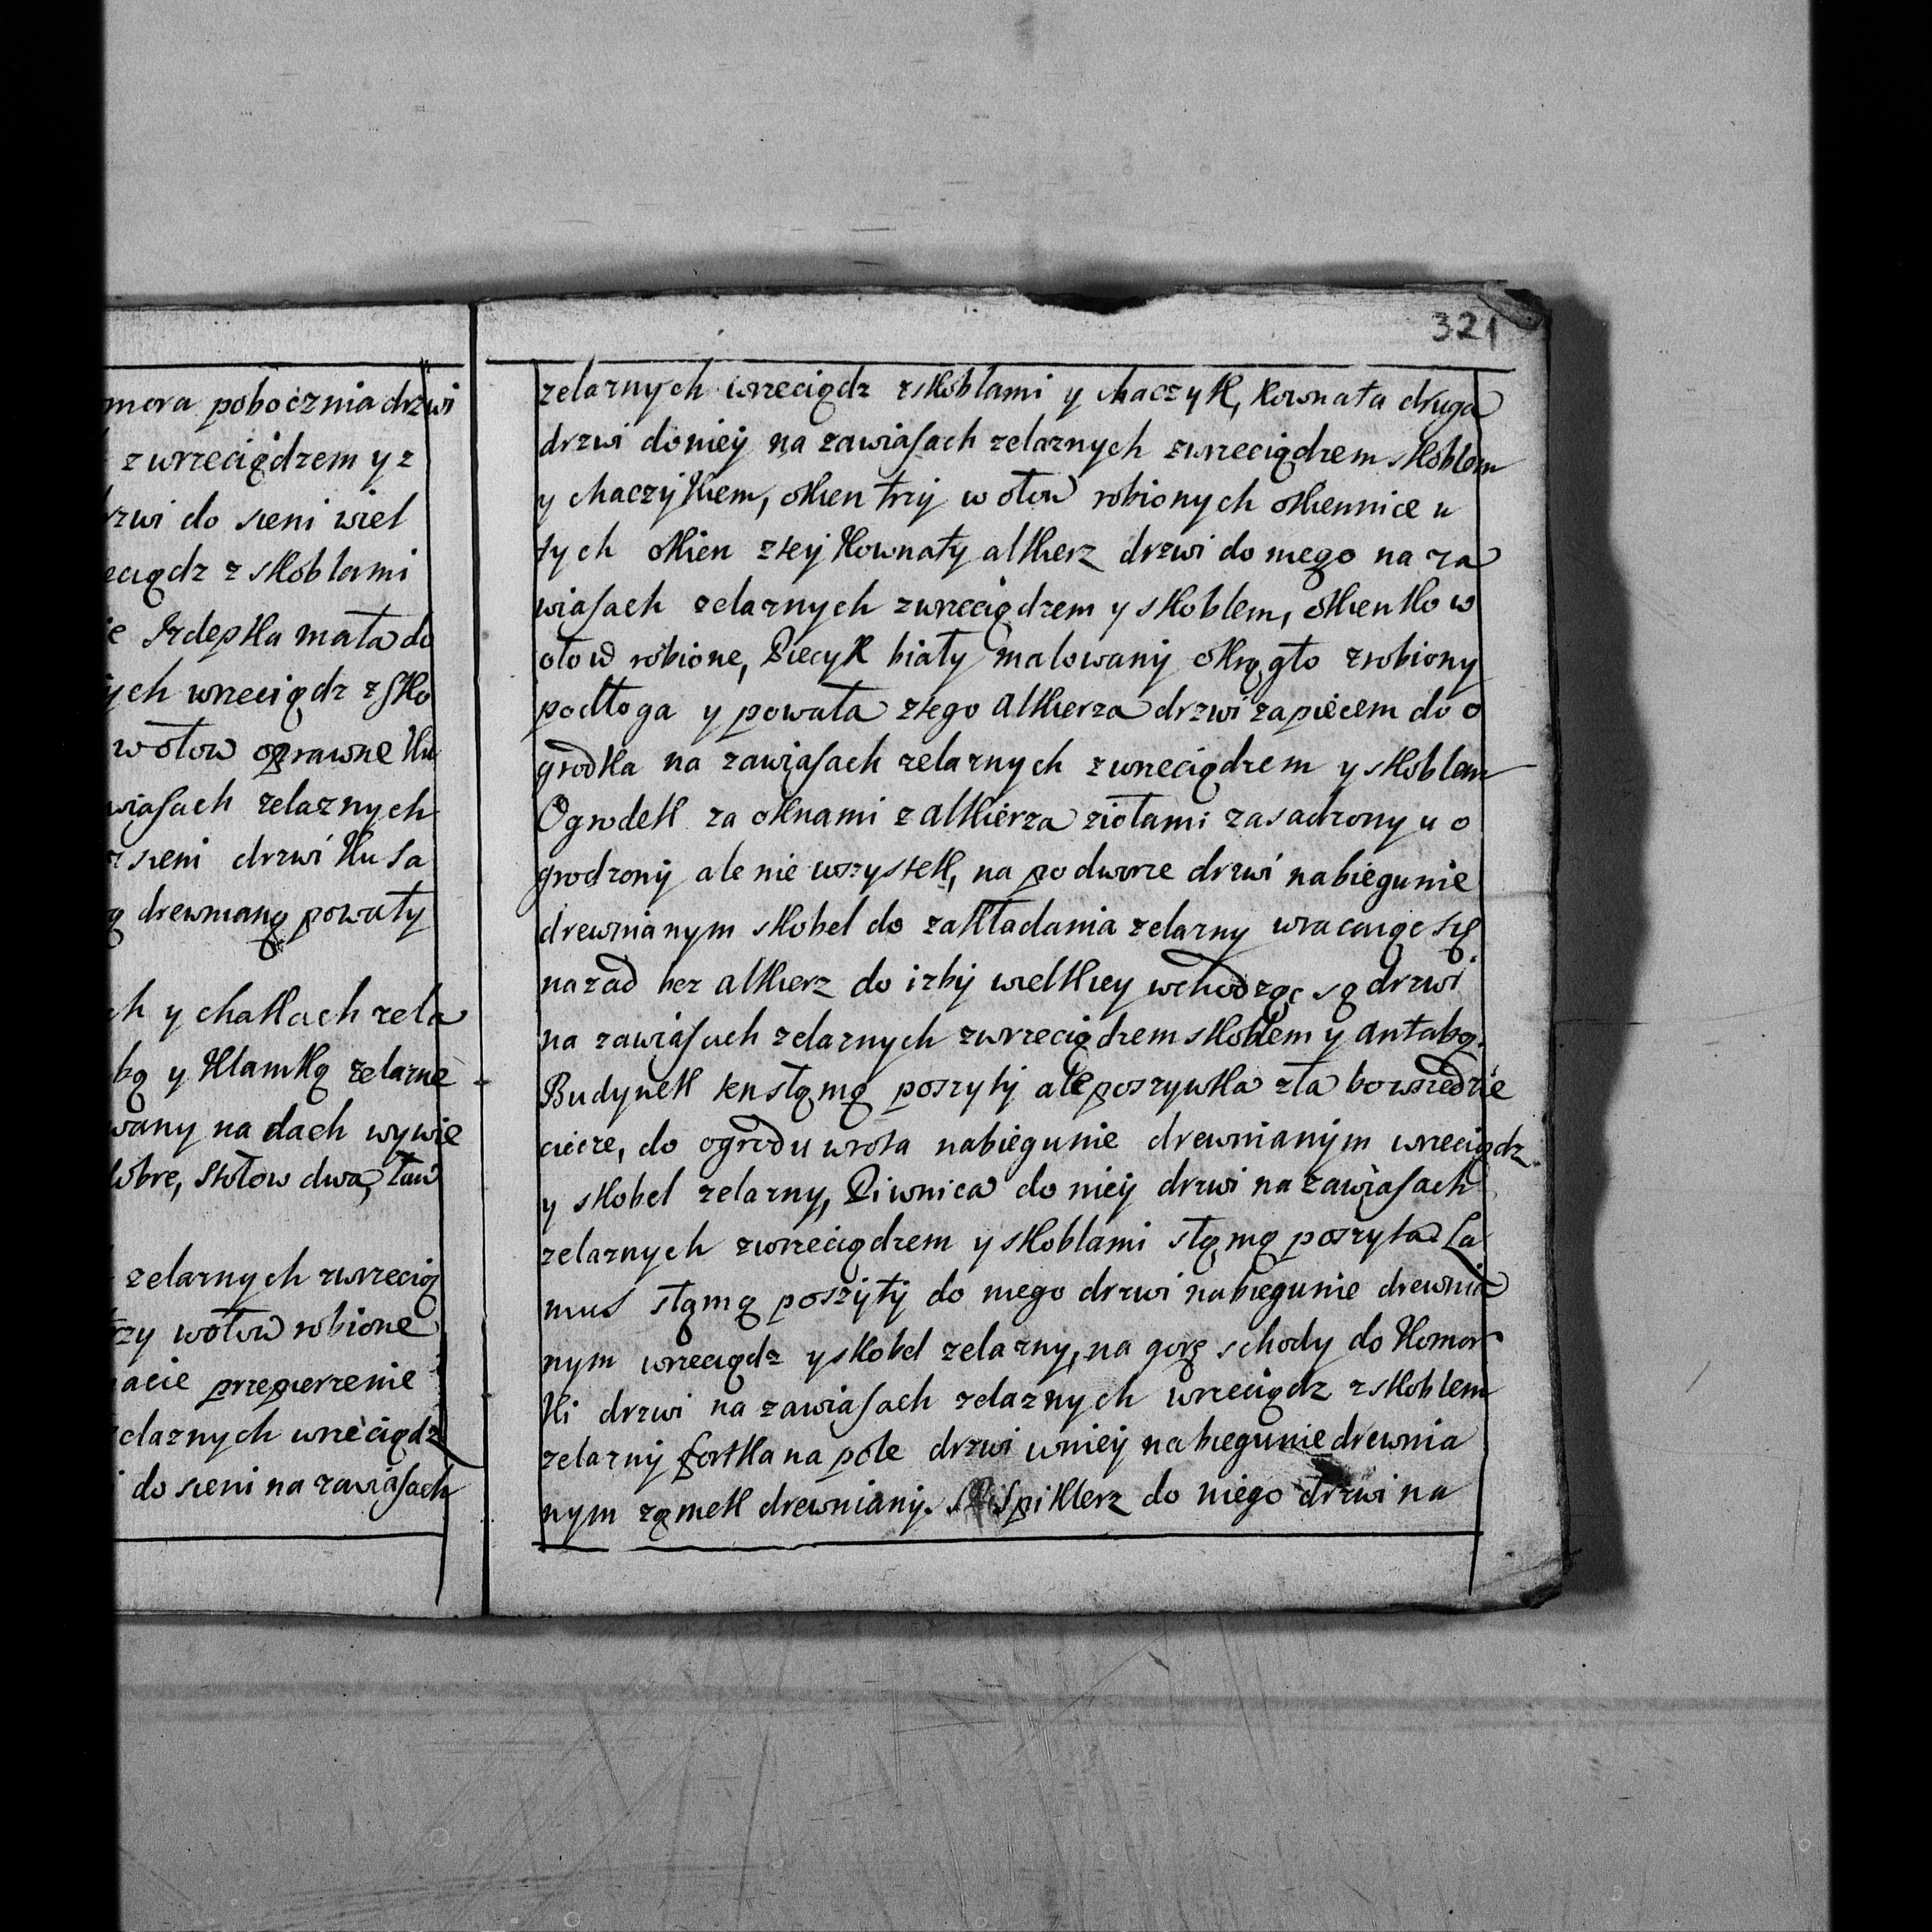 mora pobocznia drzwi
z wrzeciądzem y z
drzwi do sieni wiel
eciądz z skoblami
Izdepka mała do
ych wrzeciądz z sko
w ołow oprawne ku
wiasach zelaznych
sieni drzwi ku sa
drewnianą powały
ch y chakach zela
bą y klamką zelazne
wany na dach wywie
dobre, stołow dwa, ław
zelaznych zwrzecią
trzy wołow robione
acie przepierzenie
zelaznych wrzeciądz
do sieni na zawiasach
321
zelaznych wrzeciądz z skoblami y chaczyk, kownata druga
drzwi do niey na zawiasach zelaznych zwrzeciądzem skoblem
y chaczykiem, okien trzy w ołow robionych okiennice u
tych okien z tey kownaty alkierz drzwi do niego na za
wiasach zelaznych zwrzeciądzem y skoblem, okienko w
ołow robione, Piecyk biały malowany okrągło zrobiony
podłoga y powała z tego alkierza drzwi za piecem do o
grodka na zawiasach zelaznych zwrzeciądzem y skoblem
Ogrodek za oknami z alkierza ziołami zasadzony u o
grodzony ale nie wszystek, na podworze drzwi na biegunie
drewnianym skobel do zakładania zelazny wracaiąc się
nazad bez alkierz do izby wielkiey wchodząc są drzwi
na zawiasach zelaznych zwrzeciądzem skoblem y antabą.
Budynek ten słąmą poszyty ale poszywka zła bo wszędzie
ciecze, do ogrodu wrota na biegunie drewnianym wrzeciądz
y skobel zelazny, Piwnica do niey drzwi na zawiasach
zelaznych zwrzeciądzem y skoblami słąmą poszyta La
mus słąmą poszyty do niego drzwi na biegunie drewnia
nym wrzeciądz y skobel zelazny, na gorę schody do komor
ki drzwi na zawiasach zelaznych wrzeciądz z skoblem
zelazny fortka na pole drzwi u niey na biegunie drewnia
nym ząmek drewniany. Spiklerz do niego drzwi na